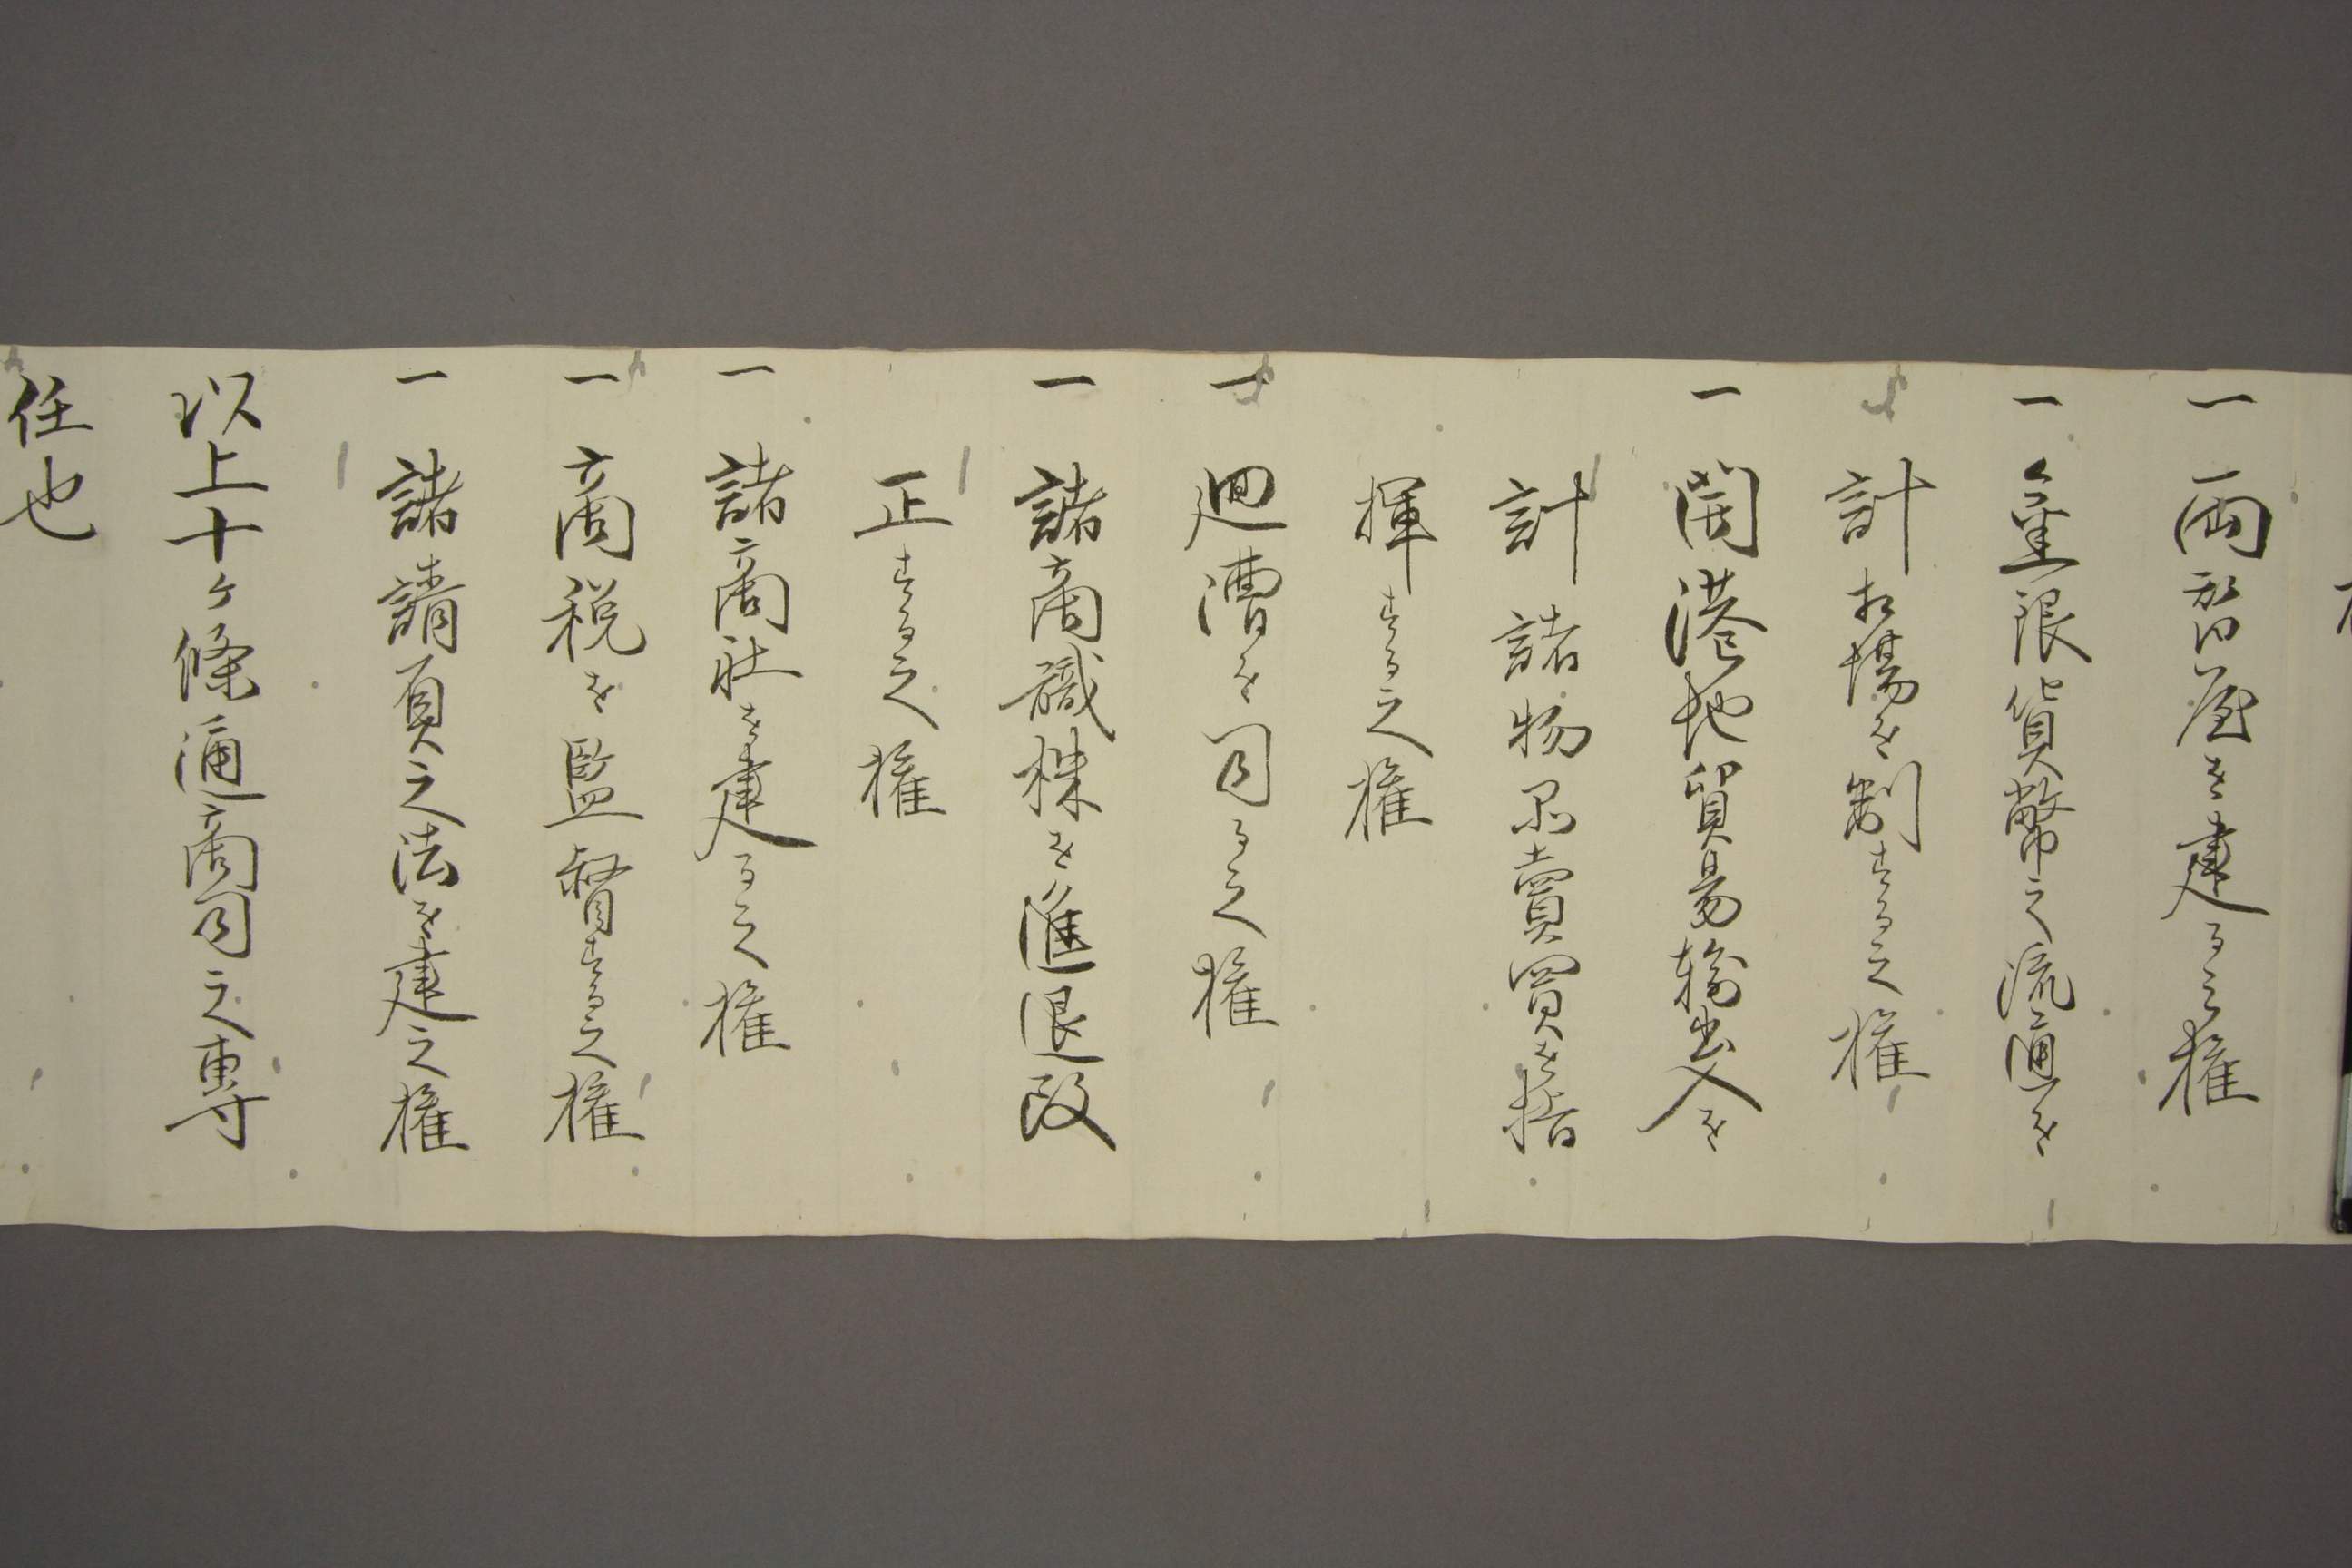 一 両替屋を建る之権
一 金銀貨幣之流通を
計相場を制する之権
一 開港地貿易輸出入を
計諸物品賣買を指
揮する之権
一 廻漕を司る之権
一 諸商職株を進退改
正する之権
一 諸商社を建る之権
一 商税を監督する之権
一 諸請負之法を建之権
以上十ヶ條通商司之専
任也